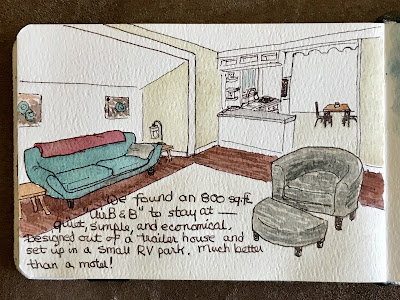 We found an 800 sq.ft.
"Air B & B" to stay at —
quiet, simple, and economical.
Designed out of a trailer house and
set up in a small RV park. Much better
than a motel!